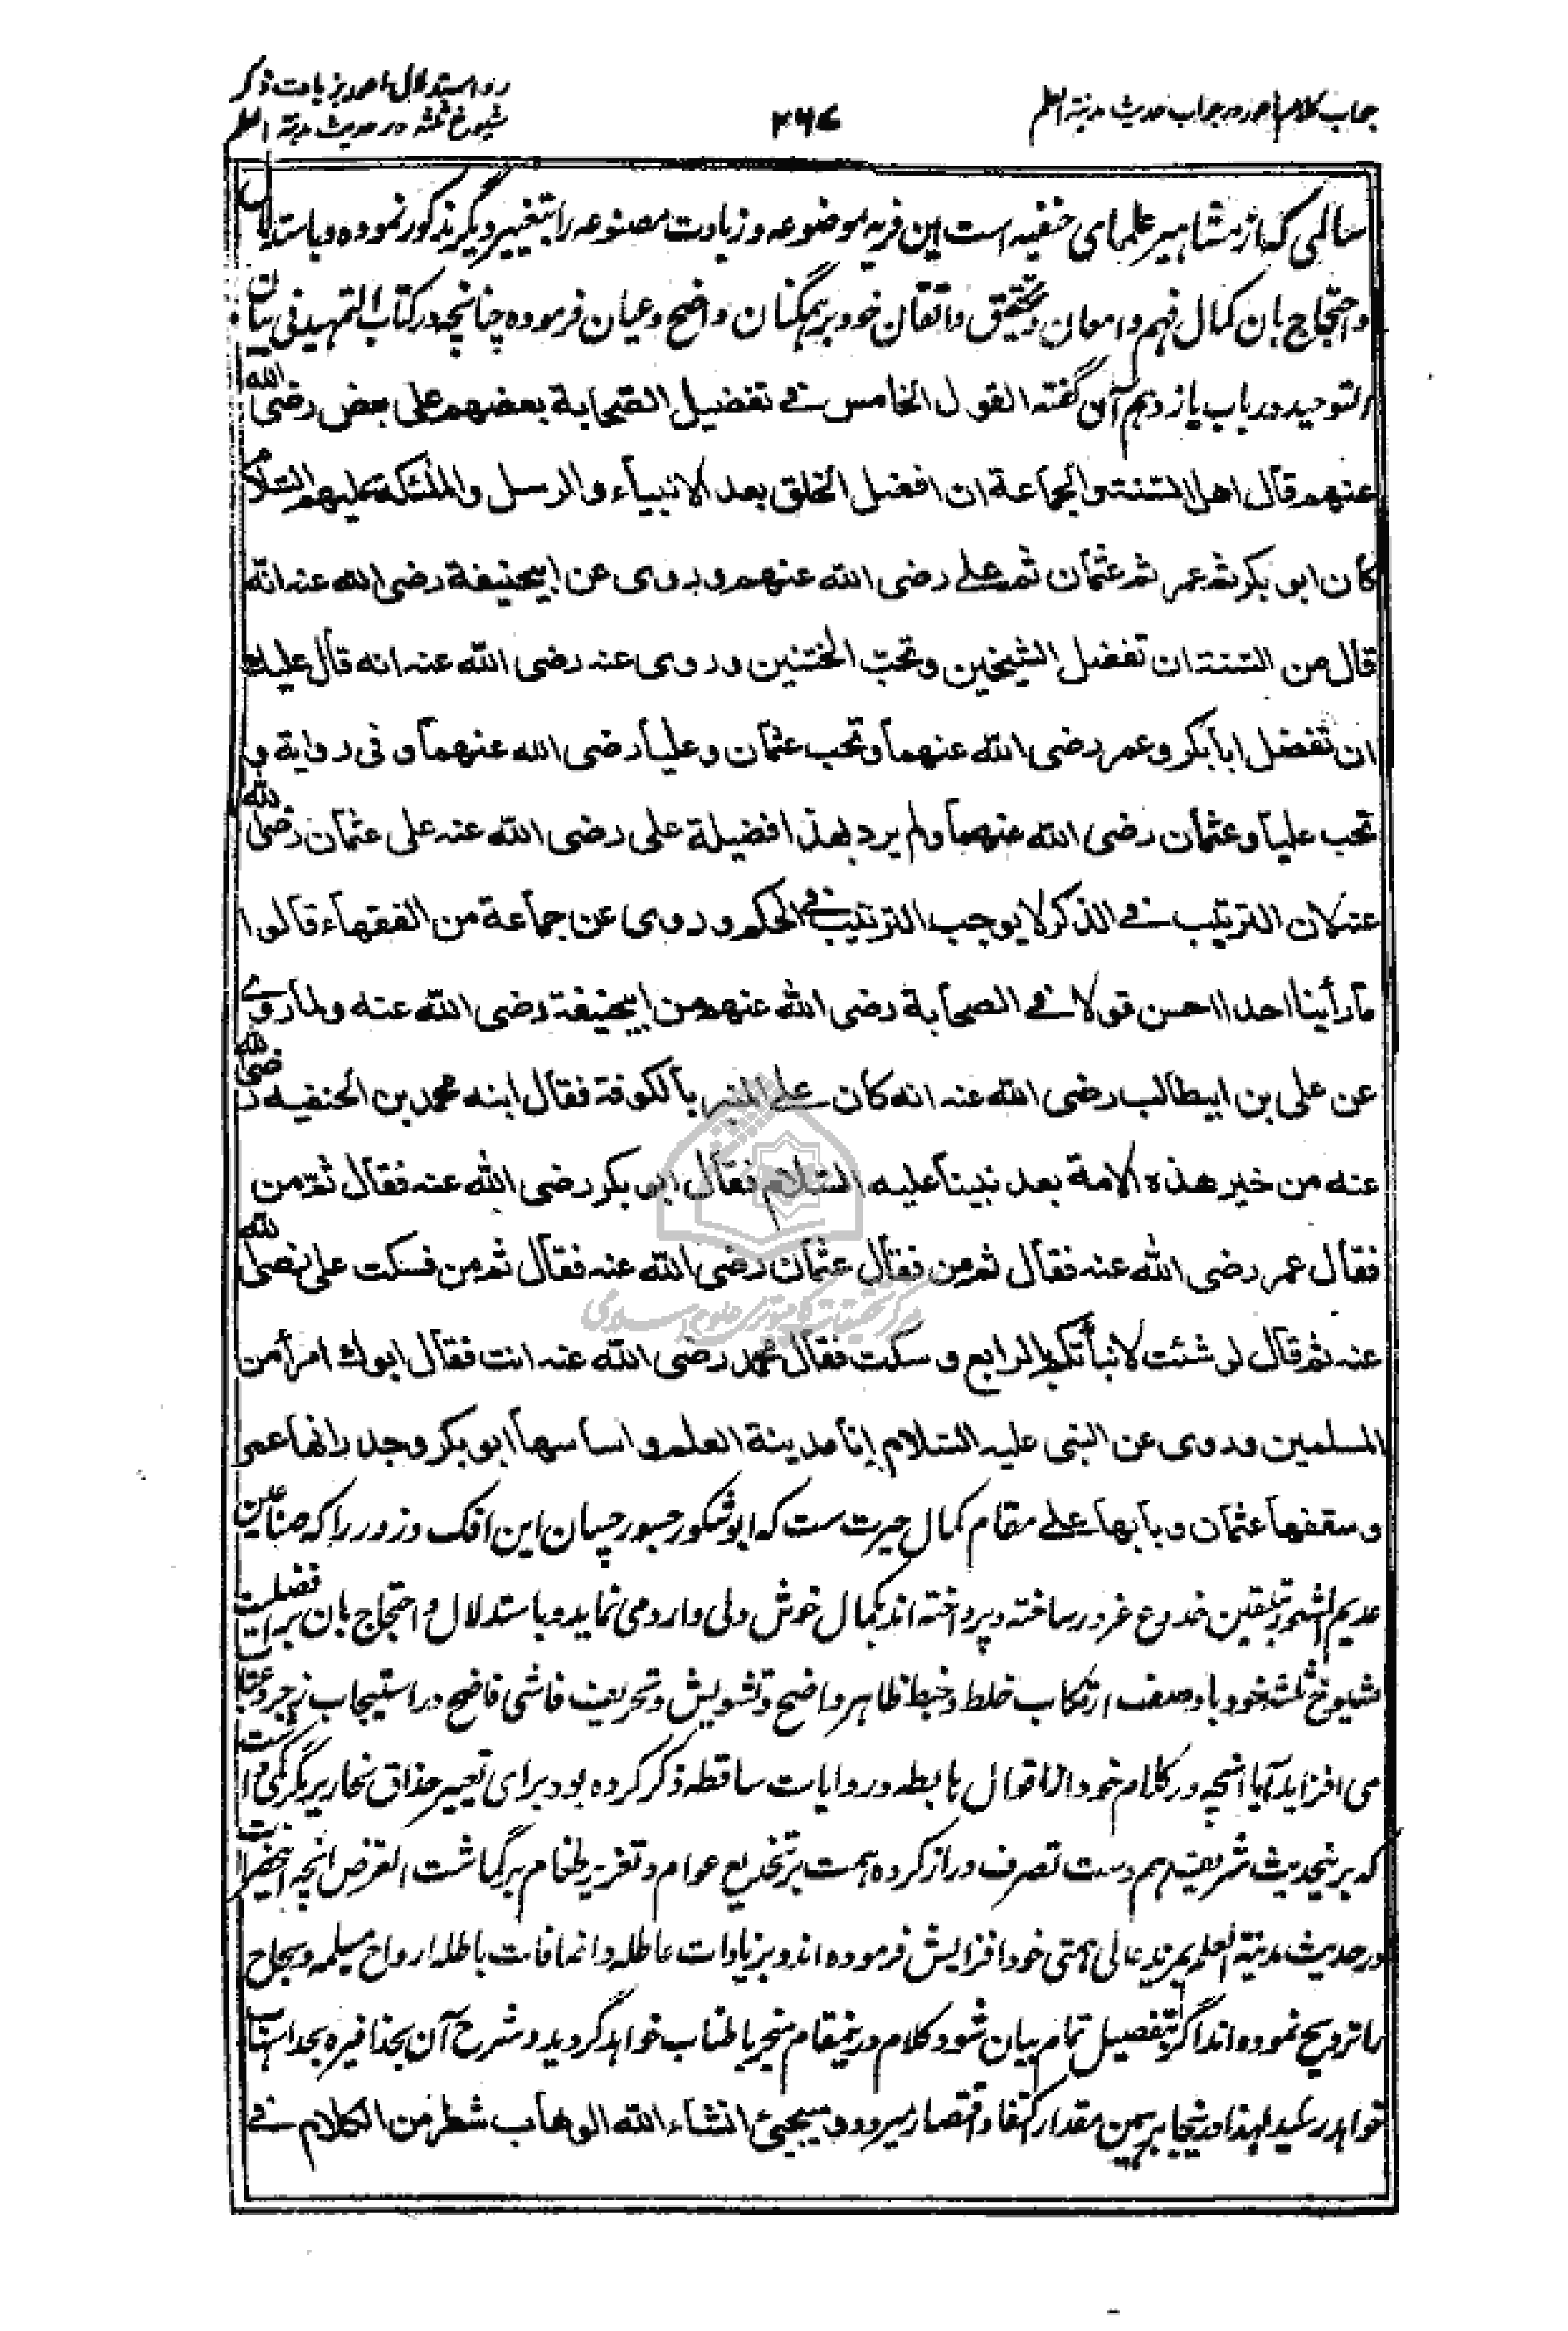 جواب کلام احمد در جواب حدیث مدینة العلم
۲۶۷
رد استدلال احمد بزیادت ذکر
شیوخ ثلثه در حدیث مدینة العلم
سالمی که از مشاهیر علمای حنفیه است این فریه موضوعه و زیادت مصنوعه را بتغییر دیگر مذکور نموده و باستدلال
و احتجاج بان کمال فهم و امعان و تحقیق و اتقان خود بر همگنان واضح و عیان فرموده چنانچه در کتاب التمهید فی بیان
التوحید در باب یازدهم آن گفته القول الخامس فے تفضیل الصحابة بعضهم علی بعض رضی الله
عنهم قال اهل السنة والجماعة ان افضل الخلق بعد الانبیاء والرسل والملئکة علیهم السلام
کان ابو بکر ثم عمر ثم عثمان ثم علے رضی الله عنهم و روی عن ابیحنیفة رضی الله عنه انّه
قال من السنة ان تفضل الشیخین وتحبّ الختنین وروی عنه رضی الله عنه انه قال علیك
ان تفضل ابا بکر و عمر رضی الله عنهما و تحب عثمان و علیا رضی الله عنهما و فی روایة و
تحب علیا و عثمان رضی الله عنهما و لم یرد بهذا فضیلة علی رضی الله عنه علی عثمان رضی الله
عنه لان الترتیب فے الذکر لا یوجب الترتیب فے الحکم و روی عن جماعة من الفقهاء قالوا
ما رأینا احدا احسن قولا فے الصحابة رضی الله عنهم من ابیحنیفة رضی الله عنه و لما روے
عن علی بن ابیطالب رضی الله عنه انه کان علے المنبر بالکوفة فقال ابنه محمد بن الحنفیه رضی الله
عنه من خیر هذه الامة بعد نبینا علیه السلام فقال ابو بکر رضی الله عنه فقال ثم من
فقال عمر رضی الله عنه فقال ثم من فقال عثمان رضی الله عنه فقال ثم من فسکت علی رضی الله
عنه ثم قال لو شئت لانبأتکم بالرابع و سکت فقال محمد رضی الله عنه انت فقال ابوك امرأ من
المسلمین و روی عن النبی علیه السلام انا مدینة العلم و اساسها ابو بکر و جدرانها عمر
و سقفها عثمان و بابها علے مقام کمال حیرت ست که ابو شکور جسور چسان این افک و زور را که صناعین
عدیم الشعور بتلقین خدوع غرور ساخته و پرداخته اند بکمال خوش دلی وارد می نماید و باستدلال و احتجاج بان برای فضلیت
شیوخ ثلثه خود با وصف ارتکاب خلط و خبط ظاهر واضح و تشویش و تحریف فاشی فاضح در استیجاب زجر و عتاب
می افزاید آیا انچه در کلام خود از اقوال هابطه و روایات ساقطه ذکر کرده بود برای تعییر حذاق نحاریر گرمی داشت
که برینحدیث شریف هم دست تصرف دراز کرده همت بر تخدیع عوام و تغریر طغام بر گماشت الغرض انچه اینحضرات
در حدیث مدینة العلم بمزید عالی همتی خود افزایش فرموده اند و بزیادات عاطله و اضافات باطله ارواح مسیلمه و سجاح
را ترویح نموده اند اگر بتفصیل تمام بیان شود کلام درینمقام منجر باطناب خواهد گردید و شرح آن بحذافیره بحد اسهاب
خواهد رسید لهذا درینجا بر همین مقدار اکتفا و اقتصار میرود و سیجیئ انشاء الله الوهاب شطر من الکلام فے
مرکز تحقیقات کامپیوتری علوم اسلامی